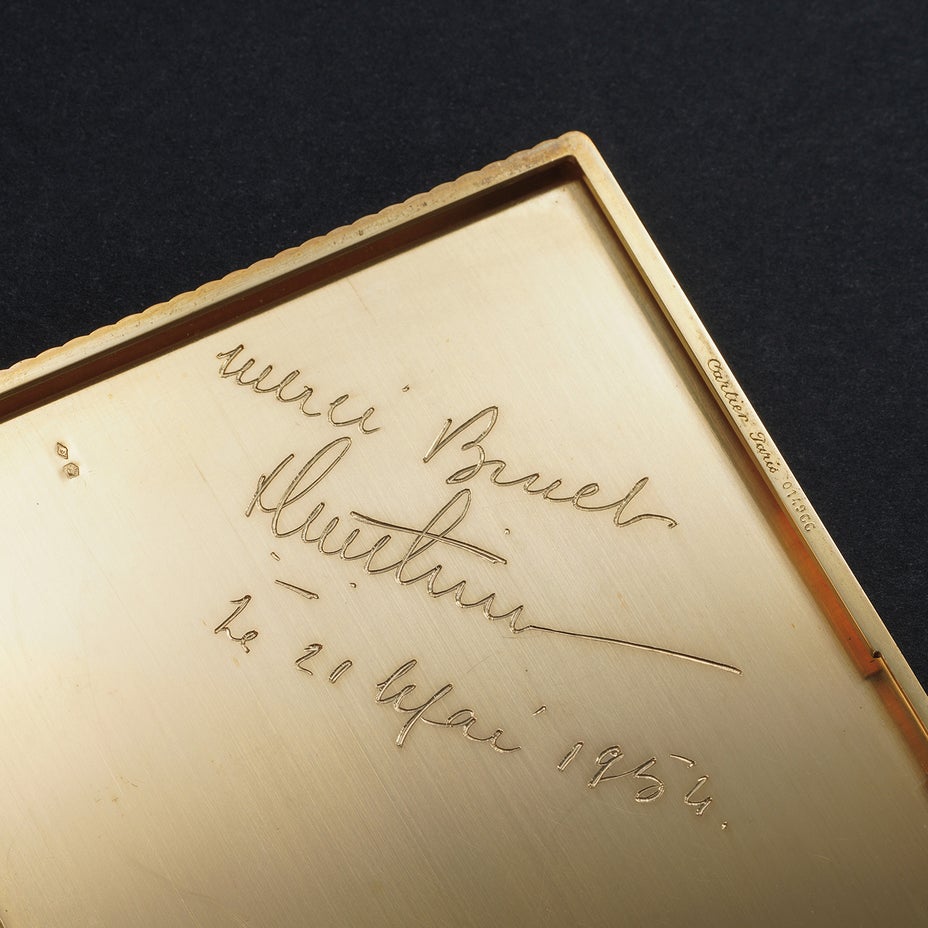 merci Bruel
Le 21 Mai 1954.
Cartier Paris 014966